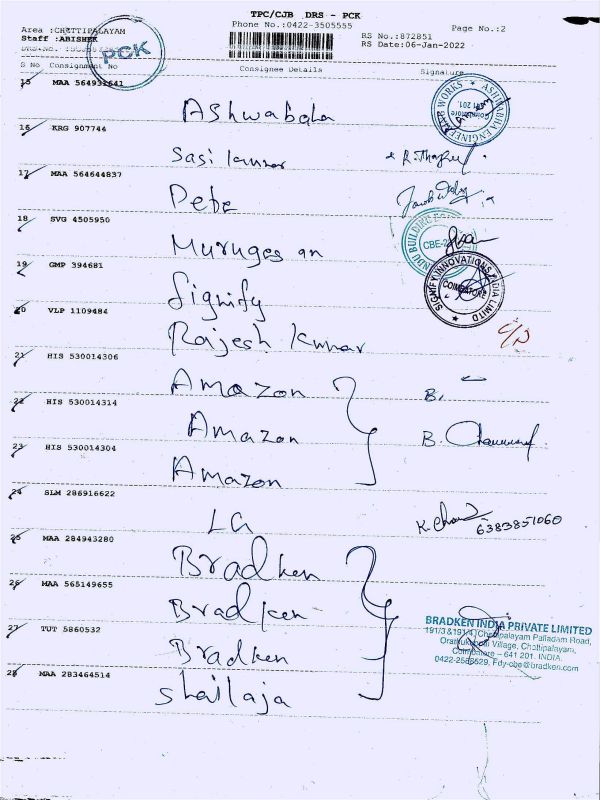 TPC/CJB DRS - PCK
Phone No.:0422-3505555
Page No.:2
Area :CHETTIPALAYAM
Staff :ABISHEK
RS No.:872851
RS Date:06-Jan-2022
PCK
S No Consignment No Consignee Details Signature
15 MAA 564931641
Ashwabaha
16 KRG 907744
Sasi kumar
17 MAA 564644837
Pete
18 SVG 4505950
Murugesan
19 GMP 394681
Signify
20 VLP 1109484
Rajesh Kumar
21 HIS 530014306
Amazon
22 HIS 530014314
Amazon
B.
23 HIS 530014304
Amazon
24 SLM 286916622
LG
6383851060
25 MAA 284943280
Bradken
26 MAA 565149655
Bradken
27 TUT 5860532
Bradken
28 MAA 283464514
Shailaja
COIMBATORE
SIGNIFY INNOVATIONS INDIA LIMITED
BRADKEN INDIA PRIVATE LIMITED
191/3 &191/4, Chettipalayam Palladam Road,
Village, Chettipalayam,
Coimbatore – 641 201. INDIA.